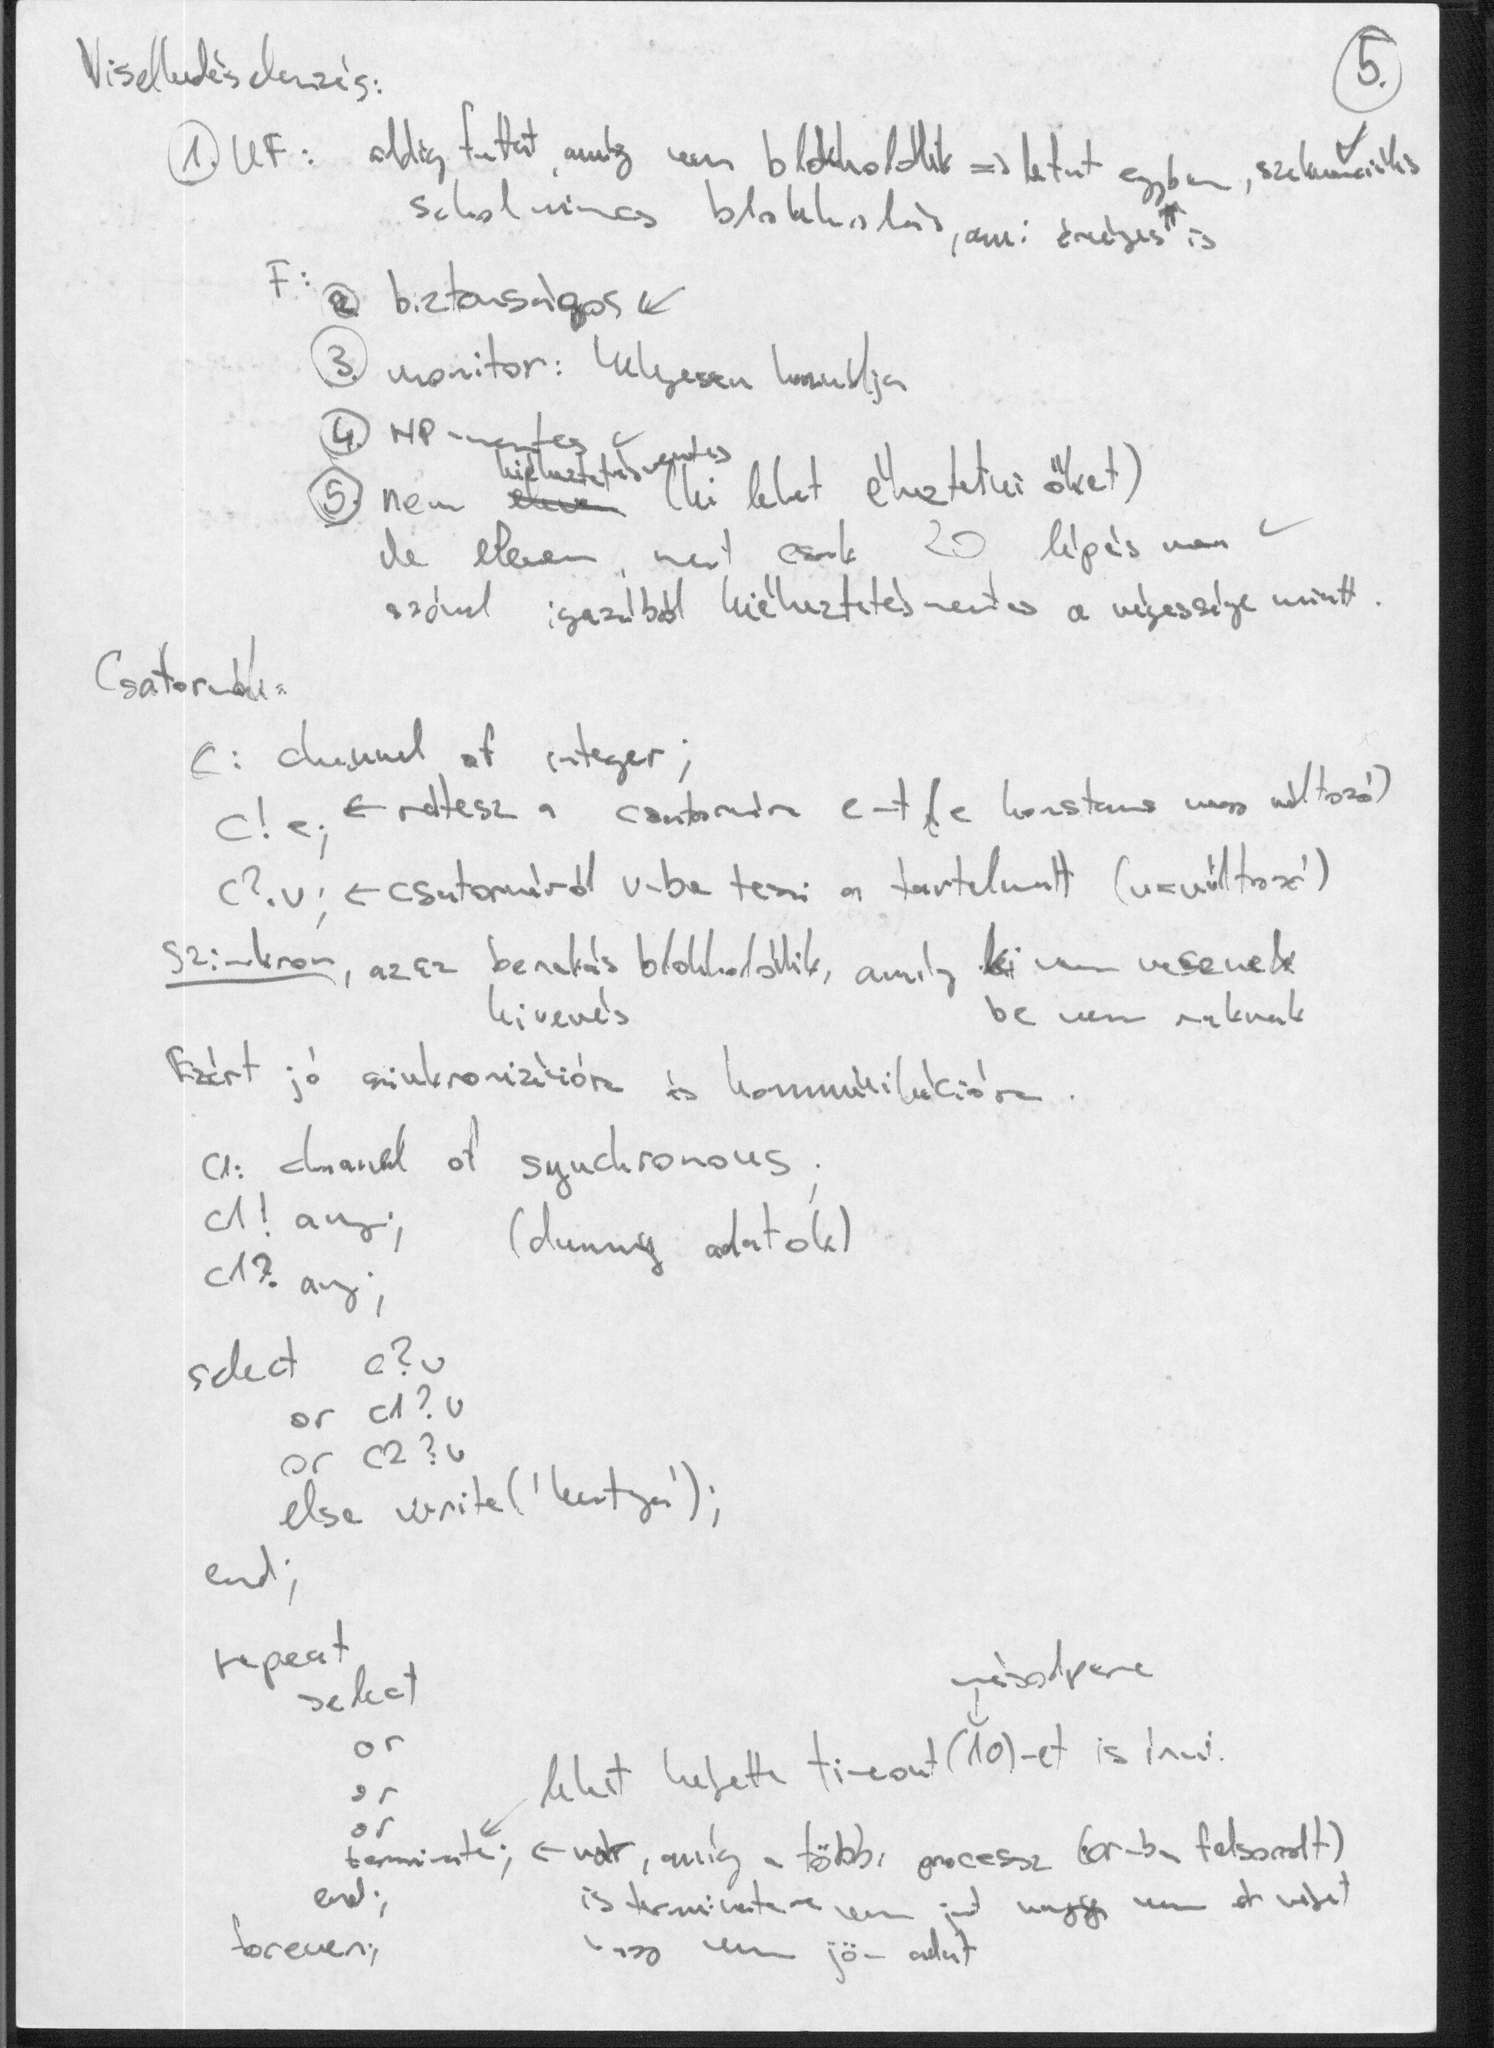 Viselkedéselemzés:
5.
1. UF: addig futtat, amíg nem blokkolódik => lefut egyben, szekvenciális
sehol nincs blokkolás, ami érvényes is
F: 2. biztonságos ↙
3. monitor: helyesen használja
4. HP-mentes ✓
kiéheztetésmentes
5. nem (ki lehet éheztetni őket)
de eleven, mert csak 20 lépés van ✓
szóval igazából kiéheztetésmentes a végessége miatt.
Csatornák:
c: channel of integer;
c! e; ← rátesz a csatornára e-t (e konstans vagy változó)
c?v; ← csatornáról v-be teszi a tartalmát (v=változó)
Szinkron, azaz berakás blokkolódik, amíg ki nem vesznek
kivevés be nem raknak
Ezért jó szinkronizációra és kommunikációra.
c1: channel of synchronous;
c1! any; (dummy adatok)
c1? any;
select c?v
or c1?v
or c2?v
else write('kutya');
end;
repeat
select
másodperc
or
lehet helyette timeout(10)-et is írni.
or
or
terminate; ← vár, amíg a többi processz (or-ban felsorolt)
end; is terminate-re nem jut vagy nem ér véget
forever; vagy nem jön adat